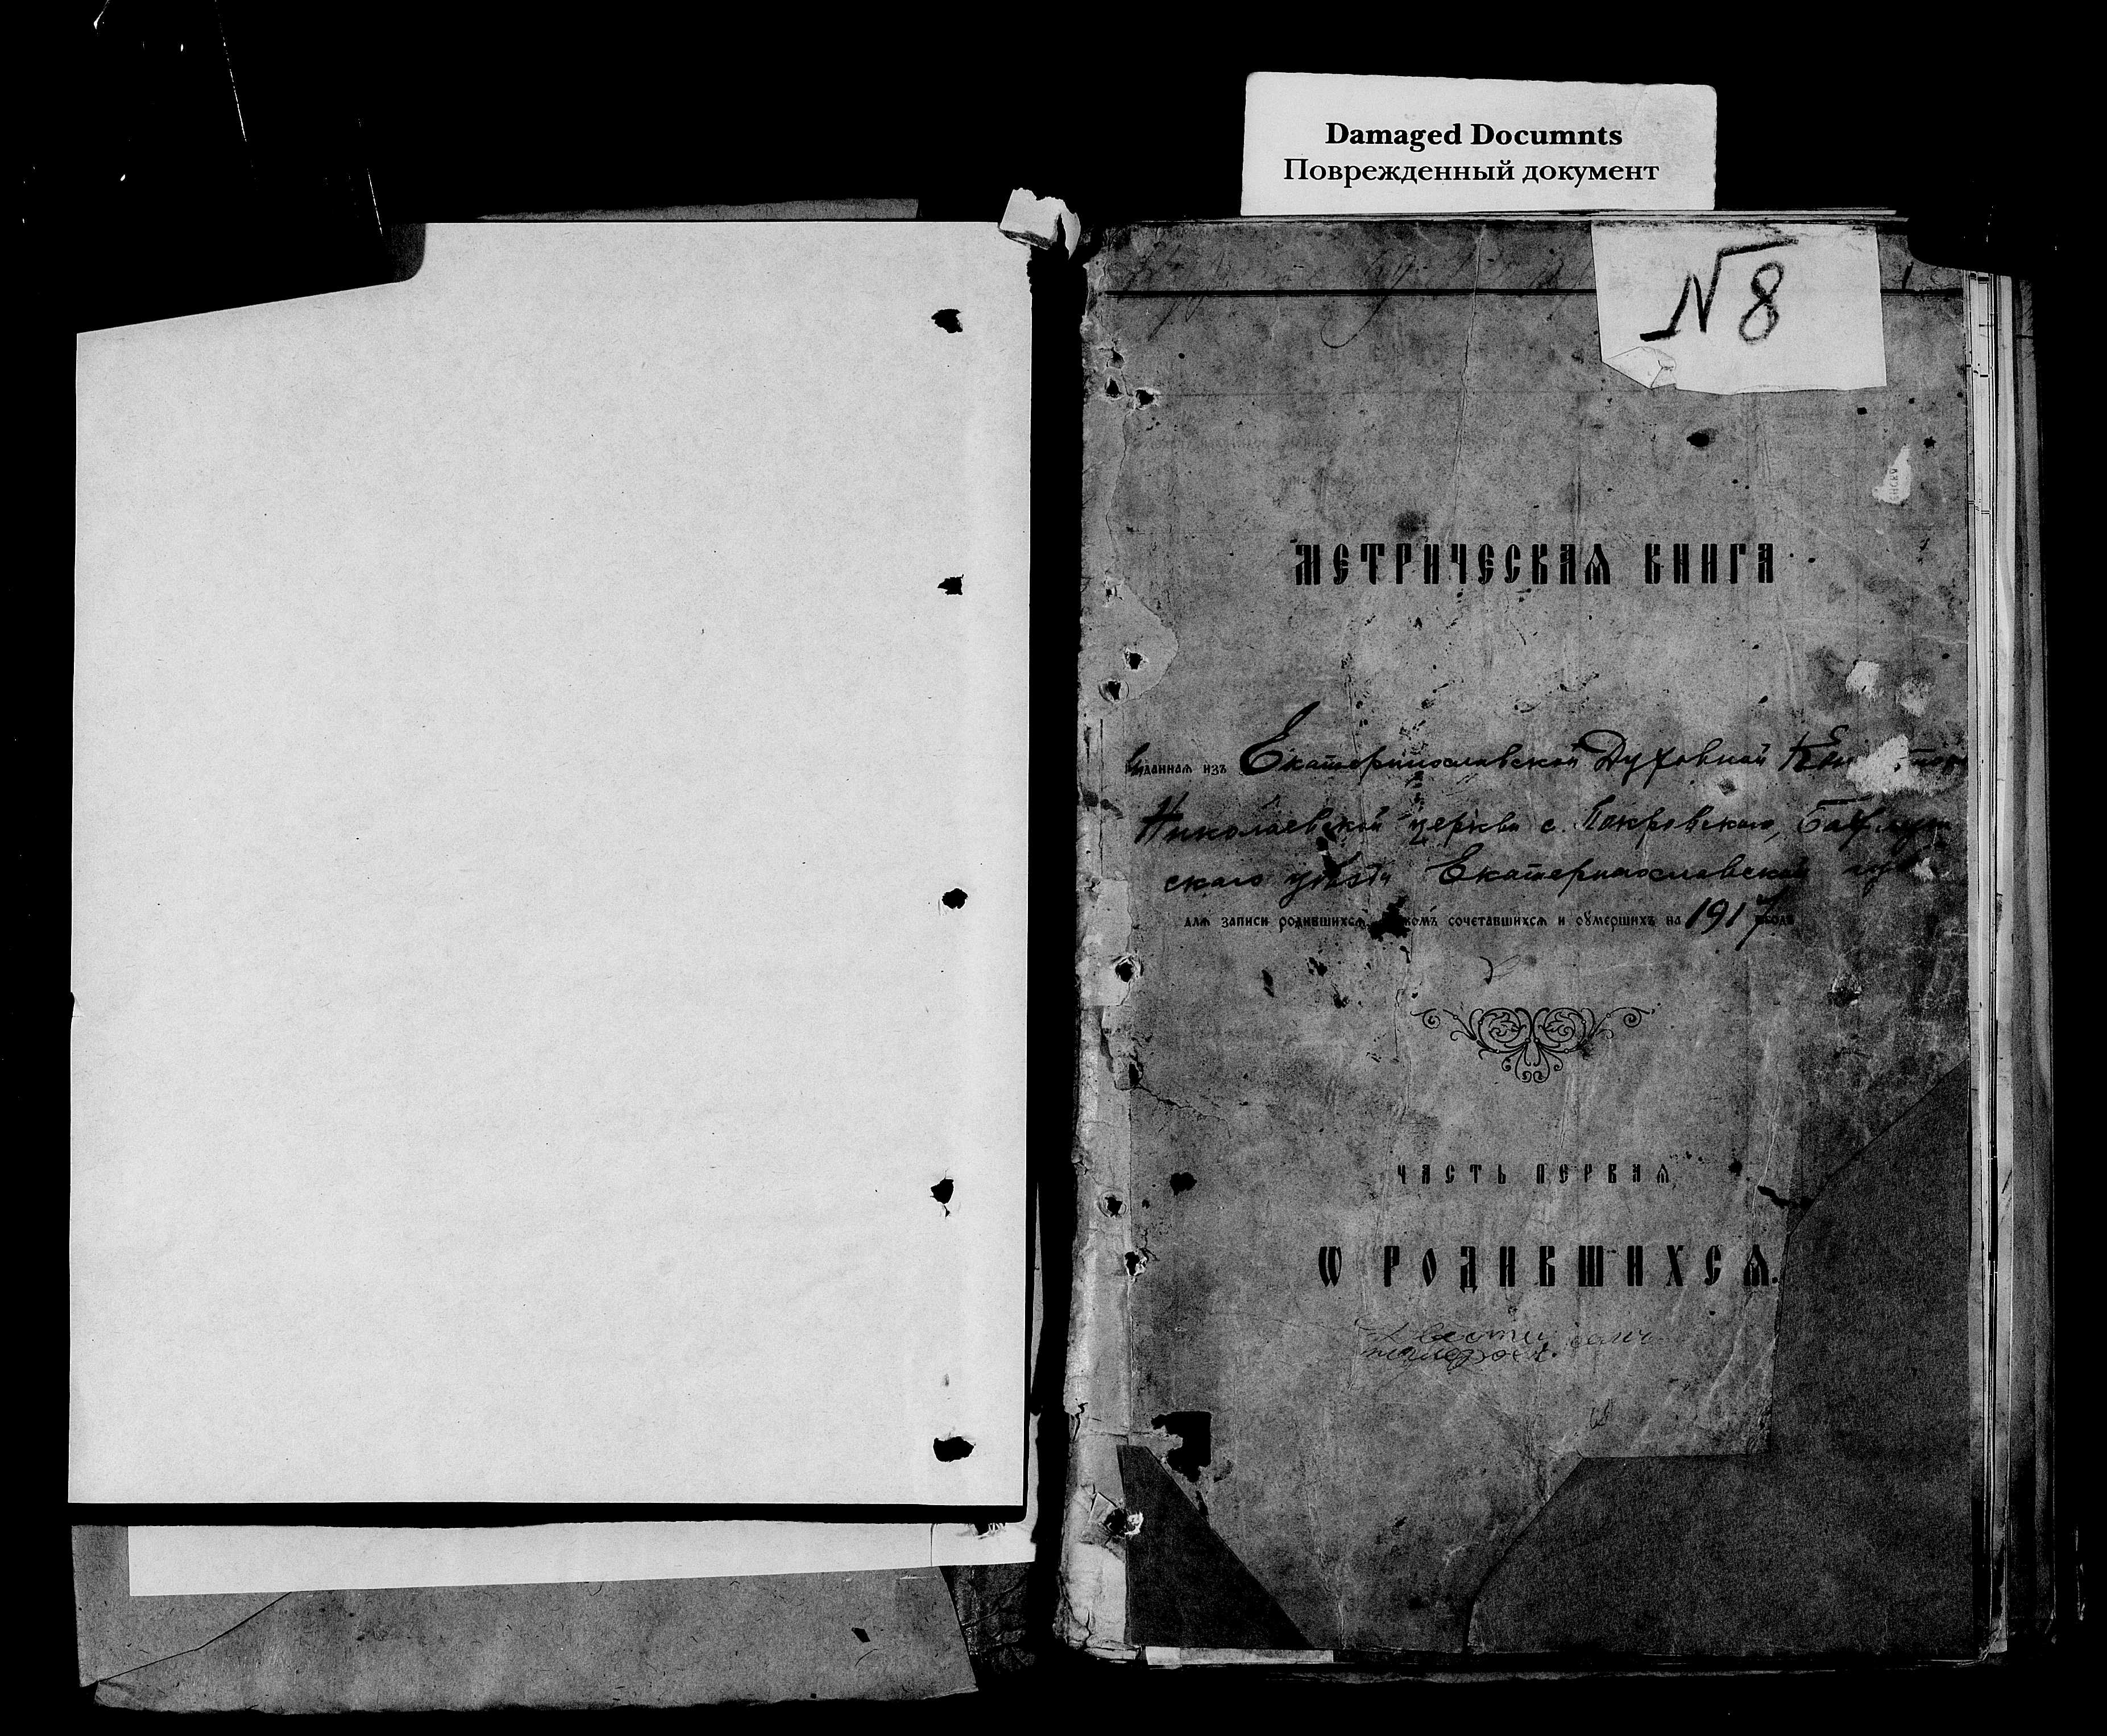 Damaged Documnts
Поврежденный документ
№ 8
МЕТРИЧЕСКАѦ КНИГА
Выданнаѧ изъ Екатеринославской Духовной
Николаевской церкви с. Покровского,
ского уѣзда Екатеринославской губ
длѧ записи родившихсѧ, комъ сочетавшихсѧ и оумершихъ на 1917 годъ
ЧАСТЬ ПЕРВАѦ
Ѡ РОДИВШИХСѦ.